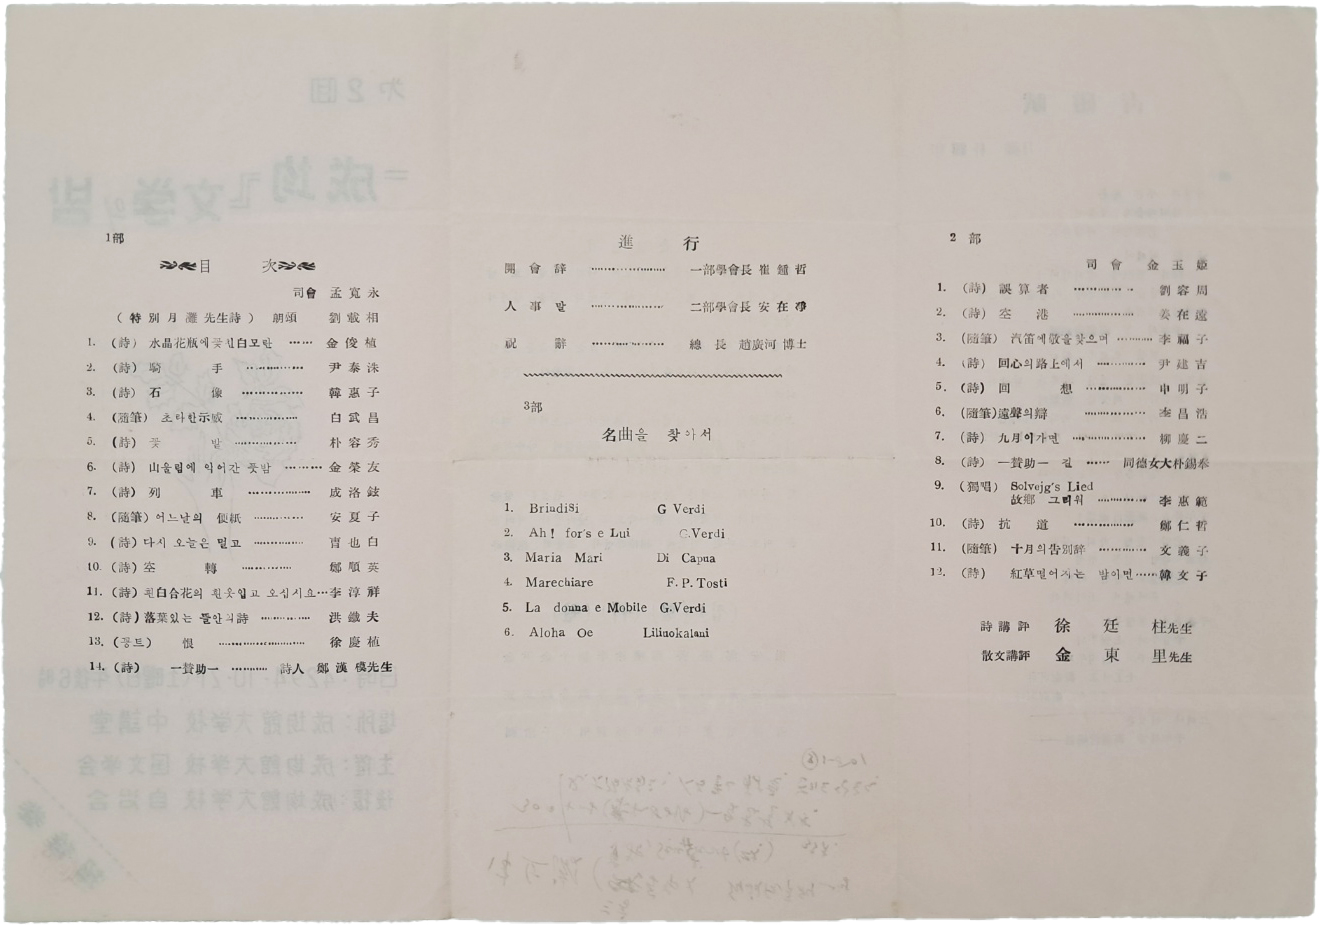 1部
目 次
司會 孟寬永
(特別月灘先生詩) 朗頌 劉載相
1. (詩) 水晶花瓶에꽃힌白모란 …… 金俊植
2. (詩) 騎 手 ………… 尹泰洙
3. (詩) 石 像 ………… 韓惠子
4. (隨筆) 초라한示威 ………… 白武昌
5. (詩) 꽃 밭 ………… 朴容秀
6. (詩) 山울림에 익어간 풋밤 ……… 金榮友
7. (詩) 列 車 ………… 成洛鉉
8. (隨筆) 어느날의 便紙 ………… 安夏子
9. (詩) 다시 오늘은 밀고 ………… 也白
10. (詩) 空 轉 ………… 鄭順英
11. (詩) 흰白合花의 흰옷입고 오십시요…李淳祥
12. (詩) 落葉있는 뜰안의詩 ………… 洪鐵夫
13. (꽁트) 恨 ………… 徐慶植
14. (詩) 一賛助一 ……… 詩人 鄭漢模先生
進 行
開會辭 ………… 一部學會長 崔鍾哲
人事말 ………… 二部學會長 安在淨
祝 辭 ………… 總長 趙廣河 博士
3部
名曲을 찾아서
1. Briudisi G Verdi
2. Ah! for's e Lui G.Verdi
3. Maria Mari Di Capua
4. Marechiare F.P.Tosti
5. La donna e Mobile G.Verdi
6. Aloha Oe Liliuokalani
2 部
司會 金玉姬
1. (詩) 誤算者 ………… 劉容周
2. (詩) 空 港 ………… 姜在遠
3. (隨筆) 汽笛에敬을찾으며 ……… 李福子
4. (詩) 回心의路上에서 ……… 尹建吉
5. (詩) 回 想 ………… 申明子
6. (隨筆)遠聲의辯 ………… 李昌浩
7. (詩) 九月이가면 ………… 柳慶二
8. (詩) 一賛助一 길 …… 同德女大朴錫奉
9. (獨唱) Solvejg's Lied
故鄕 그리워 ………… 李惠範
10. (詩) 抗 道 ………… 鄭仁哲
11. (隨筆) 十月의告別辭 ………… 文義子
12. (詩) 紅草멀어지는 밤이면……韓文子
詩講評 徐廷柱先生
散文講評 金東里先生